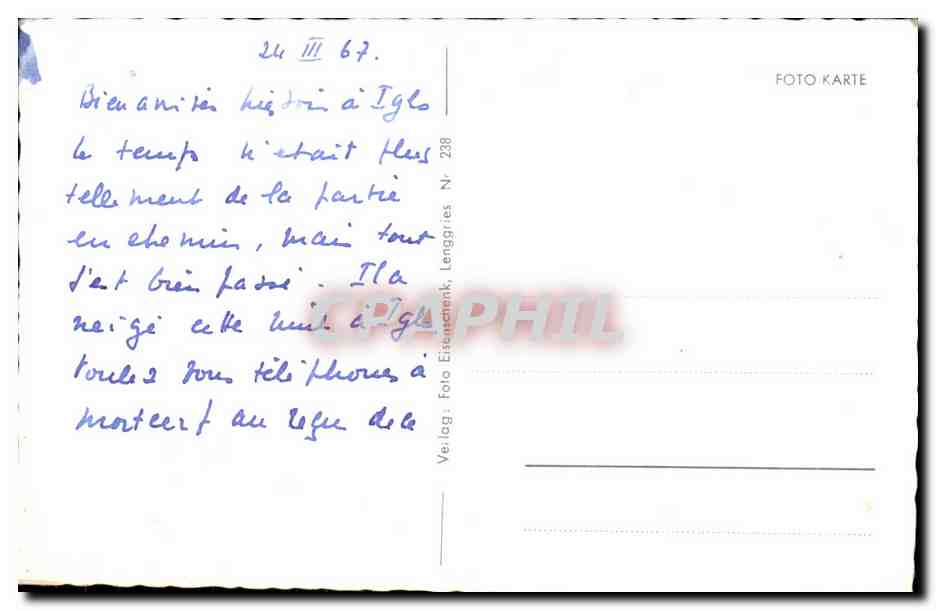 24 III 67.
FOTO KARTE
Bien arrivés hier soir à Igls
le temps n'était plus
tellement de la partie
en chemin, mais tout
s'est bien passé. Il a
neigé cette nuit à Igls
Voulez vous téléphoner à
mortcerf au reçu de la
Verlag: Foto Eisenschenk, Lenggries Nr 238
CPAPHIL